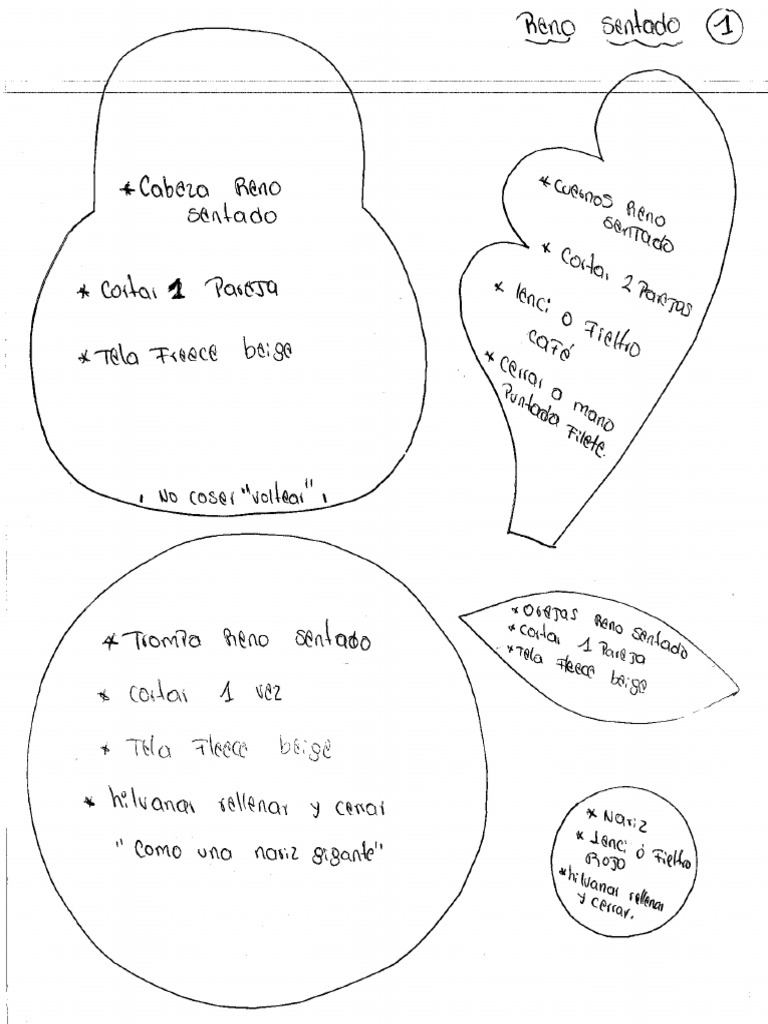 Reno sentado 1
* Cabeza Reno
sentado
* Cortar 1 Pareja
* Tela Freece beige
No coser "voltear"
* Cuernos Reno
sentado
* Cortar 2 Parejas
* lenci o Fieltro
café
* cerrar a mano
Puntada Filete.
* Trompa Reno sentado
* cortar 1 vez
* Tela Fleece beige
* hilvanar rellenar y cerrar
"como una nariz gigante"
* Orejas Reno sentado
* cortar 1 Pareja
* Tela Fleece beige
* Nariz
* lenci ó Fieltro
Rojo
* hilvanar rellenar
y cerrar.